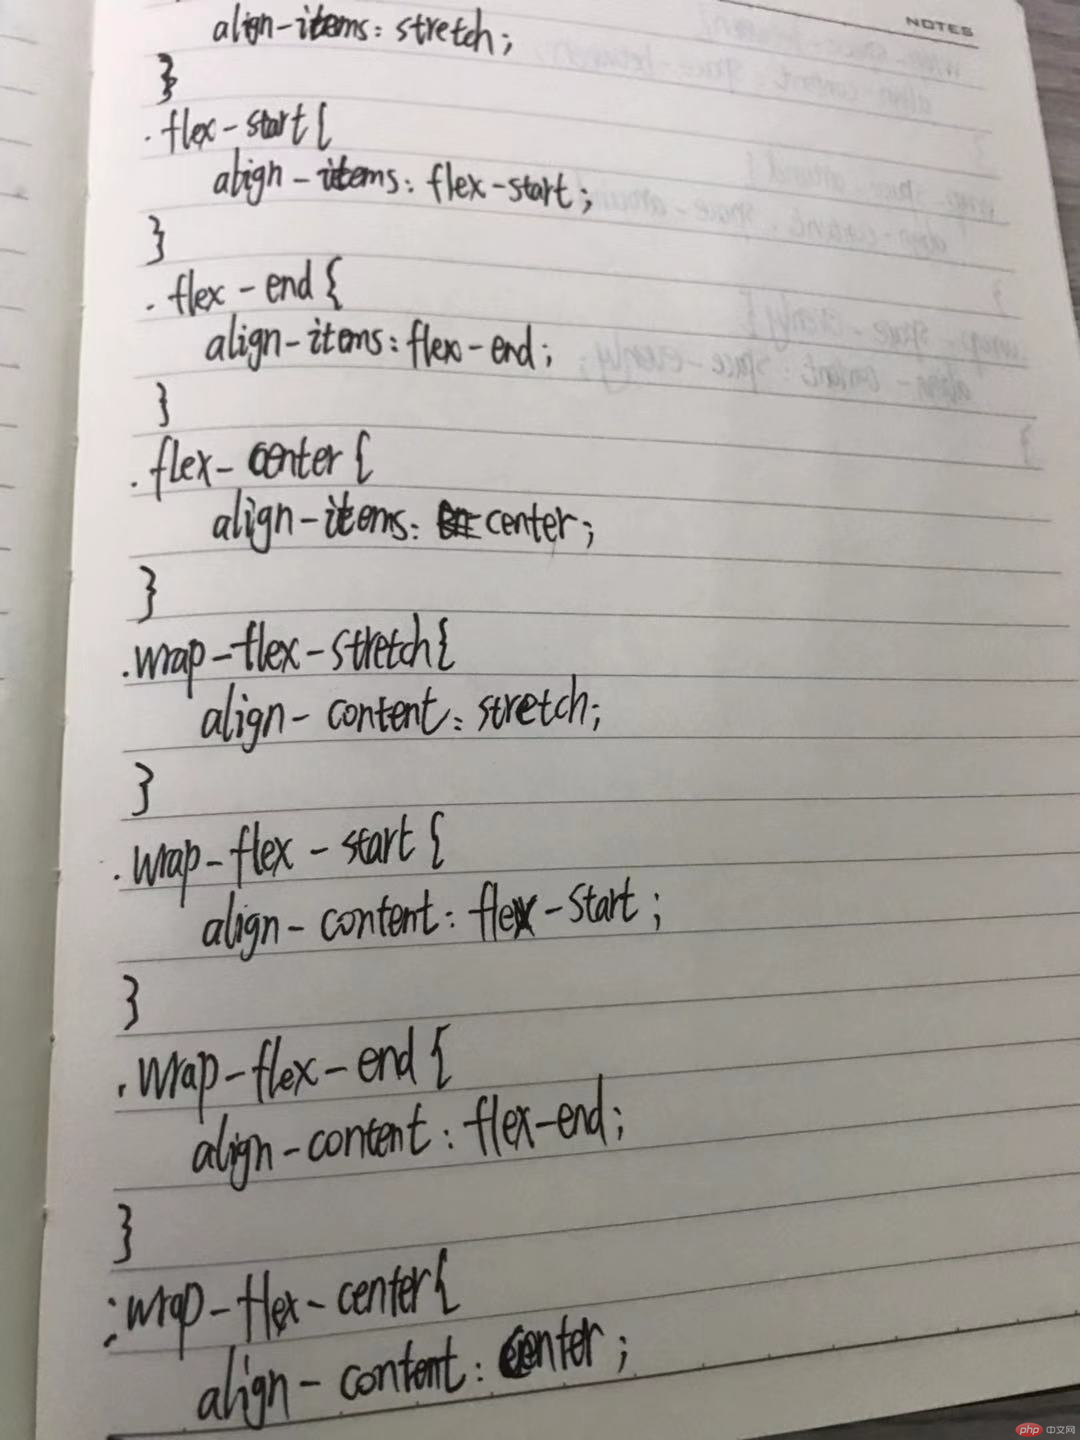 NOTES
align-items: stretch;
}
.flex-start{
align-items: flex-start;
}
.flex-end{
align-items: flex-end;
}
.flex-center{
align-items: center;
}
.wrap-flex-stretch{
align-content: stretch;
}
.wrap-flex-start{
align-content: flex-start;
}
.wrap-flex-end{
align-content: flex-end;
}
.wrap-flex-center{
align-content: center;
php 中文网